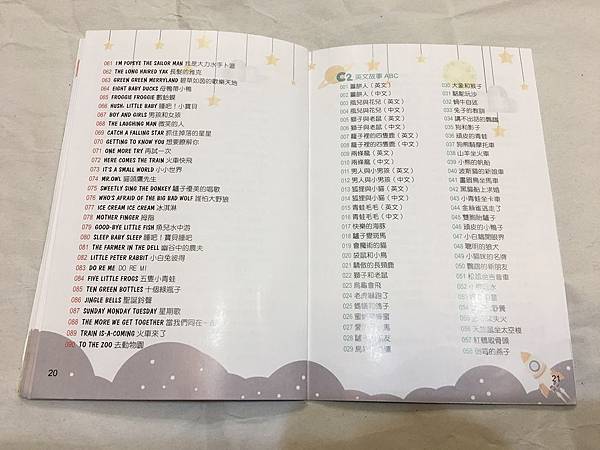 061 I'M POPEYE THE SAILOR MAN 我是大力水手卜派
062 THE LONG HAIRED YAK 長髮的雅克
063 GREEN GREEN MERRYLAND 碧草如茵的歡樂天地
064 EIGHT BABY DUCKS 母鴨帶小鴨
065 FROGGIE FROGGIE 數蛤蟆
066 HUSH, LITTLE BABY 睡吧！小寶貝
067 BOY AND GIRLS 男孩和女孩
068 THE LAUGHING MAN 微笑的人
069 CATCH A FALLING STAR 抓住掉落的星星
070 GETTING TO KNOW YOU 想要瞭解你
071 ONE MORE TRY 再試一次
072 HERE COMES THE TRAIN 火車快飛
073 IT'S A SMALL WORLD 小小世界
074 MR.OWL 貓頭鷹先生
075 SWEETLY SING THE DONKEY 驢子優美的唱歌
076 WHO'S AFRAID OF THE BIG BAD WOLF 誰怕大野狼
077 ICE CREAM ICE CREAM 冰淇淋
078 MOTHER FINGER 拇指
079 GOOD-BYE LITTLE FISH 魚兒水中游
080 SLEEP BABY SLEEP 睡吧！寶貝睡吧
081 THE FARMER IN THE DELL 幽谷中的農夫
082 LITTLE PETER RABBIT 小白兔彼得
083 DO RE ME DO RE MI
084 FIVE LITTLE FROGS 五隻小青蛙
085 TEN GREEN BOTTLES 十個綠瓶子
086 JINGLE BELLS 聖誕鈴聲
087 SUNDAY MONDAY TUESDAY 星期歌
088 THE MORE WE GET TOGETHER 當我們同在一起
089 TRAIN IS-A-COMING 火車來了
090 TO THE ZOO 去動物園
20
C2 英文故事 ABC
001 薑餅人（英文）
002 薑餅人（中文）
003 風兒與花兒（英文）
004 風兒與花兒（中文）
005 獅子與老鼠（英文）
006 獅子與老鼠（中文）
007 籠子裡的四隻鹿（英文）
008 籠子裡的四隻鹿（中文）
009 兩條龍（英文）
010 兩條龍（中文）
011 男人與小男孩（英文）
012 男人與小男孩（中文）
013 狐狸與小貓（英文）
014 狐狸與小貓（中文）
015 青蛙毛毛（英文）
016 青蛙毛毛（中文）
017 快樂的海豚
018 驢子變斑馬
019 會魔術的貓
020 袋鼠和小鳥
021 驕傲的長頸鹿
022 獅子和老鼠
023 烏龜會飛
024 老虎嚇跑了
025 螞蟻和鴿子
026 蜜
027 愛
028 驢
029 烏
030 大象和猴子
031 駱駝玩沙
032 蝸牛自述
033 兔子的教訓
034 講不出話的鸚鵡
035 狗和影子
036 頑皮的青蛙
037 狗熊騎摩托車
038 山羊坐火車
039 小熊的帆船
040 波斯貓的新娘車
041 畫眉鳥坐馬車
042 黑貓船上求婚
043 小青蛙坐卡車
044 金絲雀逃走了
045 雙胞胎驢子
046 頑皮的小鴨子
047 小白驢開眼界
048 聰明的狼犬
049 小貓咪的名牌
050 鸚鵡的新朋友
051
052
053
054
055
056
057 紅鶴取骨頭
058 的燕子
21